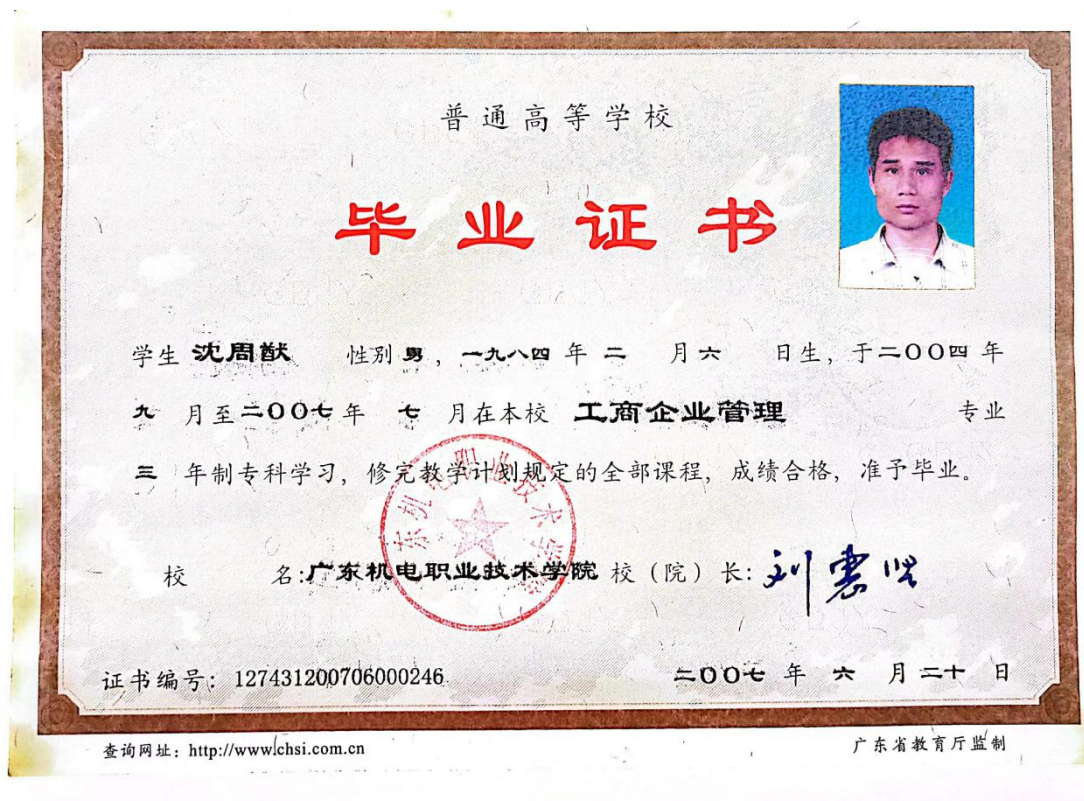 普通高等学校
毕业证书
学生 沈周猷 性别 男，一九八四 年 二 月 六 日生，于二〇〇四 年
九 月至二〇〇七 年 七 月在本校 工商企业管理 专业
三 年制专科学习，修完教学计划规定的全部课程，成绩合格，准予毕业。
广东机电职业技术学院
校 名:广东机电职业技术学院 校（院）长:
证书编号: 127431200706000246 二〇〇七 年 六 月 二十 日
查询网址: http://www.chsi.com.cn 广东省教育厅监制